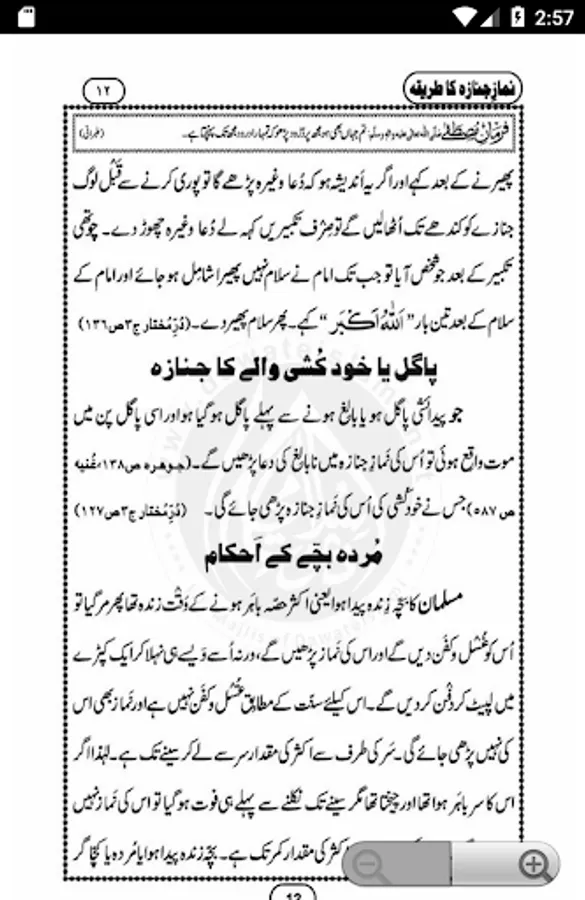 2:57
نمازِ جنازہ کا طریقہ
۱۲
فرمانِ مصطفٰے صلی اللہ تعالیٰ علیہ والہ وسلم: تم جہاں بھی ہو مجھ پر دُرود پڑھو کہ تمہارا درود مجھ تک پہنچتا ہے۔ (طبرانی)
پھیرنے کے بعد کہے اور اگر یہ اندیشہ ہو کہ دُعا وغیرہ پڑھے گا تو پوری کرنے سے قَبْل لوگ
جنازے کو کندھے تک اُٹھا لیں گے تو صِرْف تکبیریں کہہ لے دُعا وغیرہ چھوڑ دے۔ چوتھی
تکبیر کے بعد جو شخص آیا تو جب تک امام نے سلام نہیں پھیرا شامِل ہو جائے اور امام کے
سلام کے بعد تین بار ”اَللّٰهُ اَكْبَر“ کہے۔ پھر سلام پھیر دے۔ (دُرِّمُختار ج۳ ص۱۳۶)
پاگل یا خود کُشی والے کا جنازہ
جو پیدائشی پاگل ہو یا بالغ ہونے سے پہلے پاگل ہو گیا ہو اور اسی پاگل پن میں
موت واقع ہوئی تو اُس کی نمازِ جنازہ میں نابالغ کی دعا پڑھیں گے۔ (جوھرہ ص۱۳۸، غُنیہ
ص ۵۸۷) جس نے خودکُشی کی اُس کی نمازِ جنازہ پڑھی جائے گی۔ (دُرِّمُختار ج۳ ص۱۲۷)
مُردہ بچّے کے اَحکام
مسلمان کا بچّہ زِندہ پیدا ہوا یعنی اکثر حصّہ باہَر ہونے کے وَقْت زندہ تھا پھر مر گیا تو
اُس کو غُسْل و کفَن دیں گے اور اس کی نماز پڑھیں گے، ورنہ اُسے وَیسے ہی نہلا کر ایک کپڑے
میں لپیٹ کر دَفْن کر دیں گے۔ اس کیلئے سنّت کے مطابِق غُسْل و کفَن نہیں ہے اور نَماز بھی اس
کی نہیں پڑھی جائے گی۔ سَر کی طرف سے اکثر کی مقدار سر سے لے کر سینے تک ہے۔ لہٰذا اگر
اس کا سر باہَر ہوا تھا اور چیختا تھا مگر سینے تک نکلنے سے پہلے ہی فوت ہو گیا تو اس کی نَماز نہیں
اکثر کی مقدار کمر تک ہے۔ بچّہ زندہ پیدا ہوا یا مُردہ یا کچّا گر